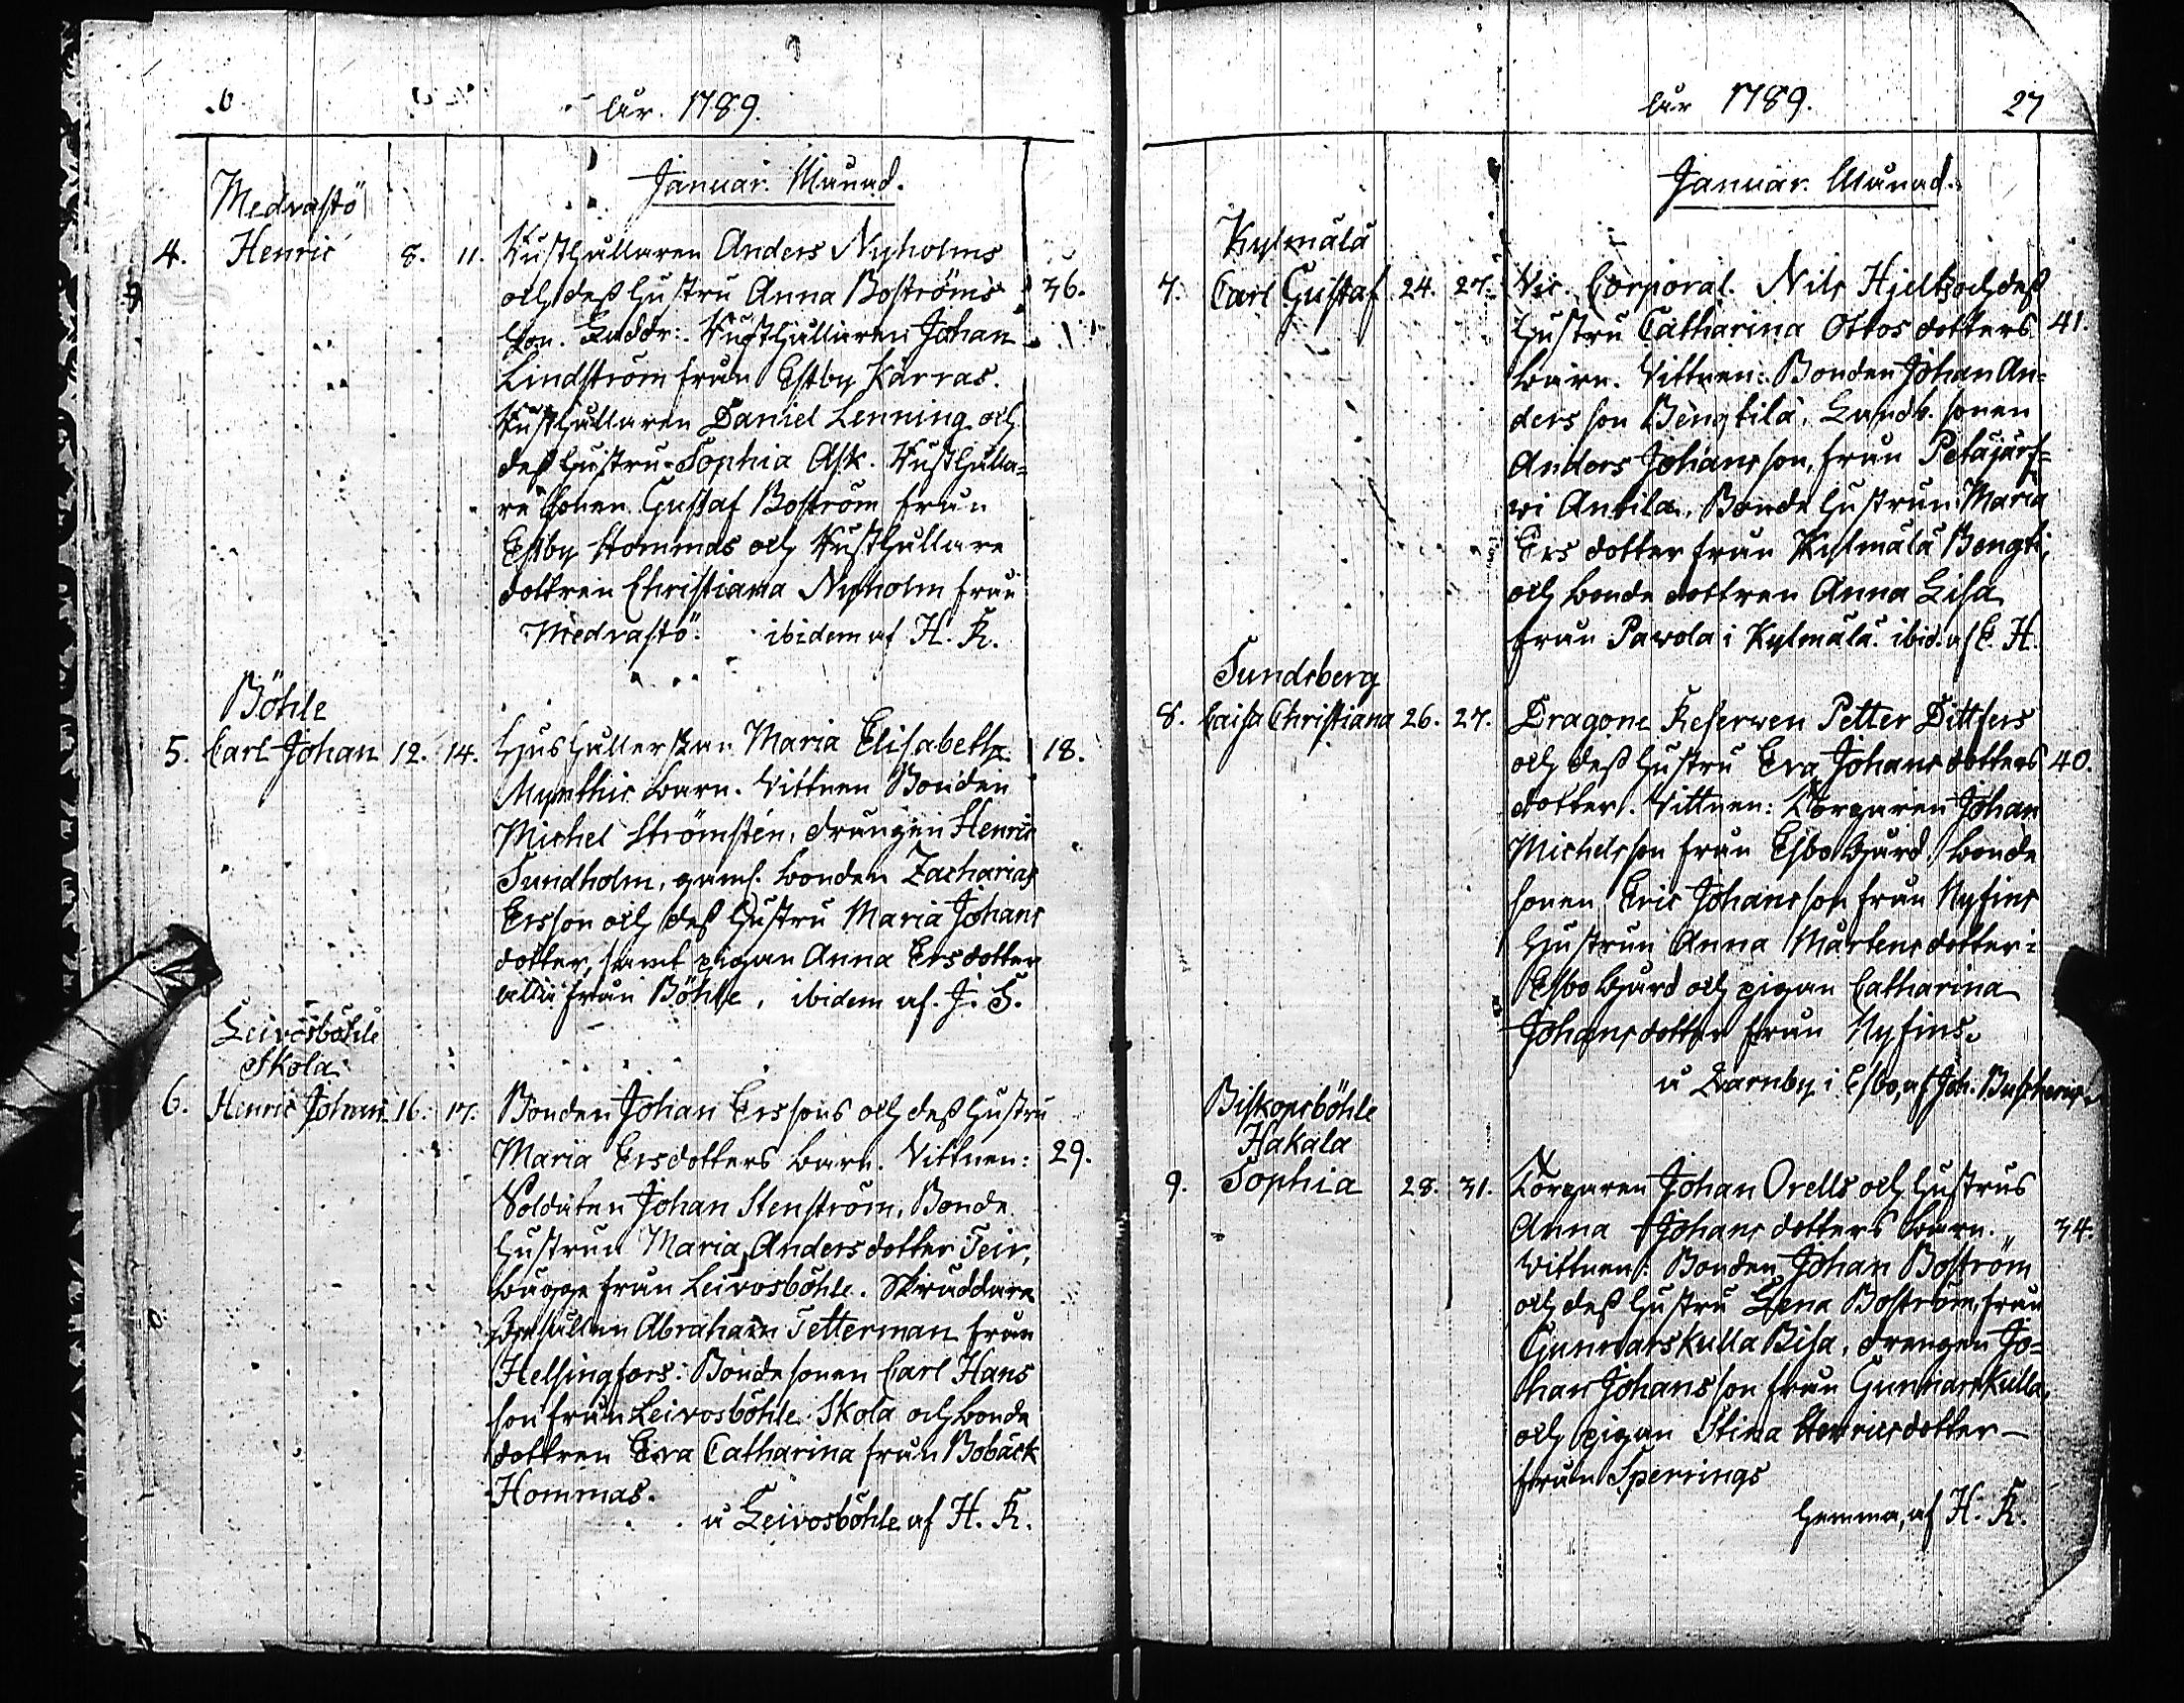 År. 1789.
Januar. Månad.
Medvastö
4. Henric 8. 11. Rusthållaren Anders Nyholms
och dess hustru Anna Boströms 36.
son. Faddr: Rusthållaren Johan
Lindström från Estby Karras.
Rusthållaren Daniel Lenning och
dess hustru Sophia Ask. Rusthålla=
re sonen Gustaf Boström från
Estby Hommas och Rusthållare
dottren Christiana Nyholm från
Medvastö. ibidem af H. K.
Böhle
5. Carl Johan 12. 14. Hushållerskan Maria Elisabetha 18.
barn. Vittnen Bonden
Michel Strömsten, drängen Henric
Sundholm, gaml. bonden Zacharias
Ersson och dess hustru Maria Johans
dotter, samt pigan Anna Ersdotter
alla från Böhle, ibidem af. J. H.
Leivosböhle
Skola
6. Henric Johan 16. 17. Bonden Johan Erssons och dess hustru
Maria Ersdotters barn. Vittnen: 29.
Soldaten Johan Stenström, Bonde
hustrun Maria Andersdotter Teir,
bagge från Leivosböhle. Skräddare
Gesällen Abraham Tetterman från
Helsingfors: Bondesonen Carl Hans
son från Leivosböhle Skola och bonde
dottren Eva Catharina från Bobäck
Hommas.
å Leivosböhle af H. K.
År 1789. 27
Januar. Månad.
Kylmälä
7. Carl Gustaf 24. 27. Vic. Corporal Nils Hjelts och dess
hustru Catharina Ottosdotters 41.
barn. Vittnen: Bonden Johan An=
dersson Bengtilä, Landb. sonen
Anders Johansson, från Petäjärf=
wi Antila, Bonde hustrun Maria
Ersdotter från Kylmälä Bengts,
och bonde dottren Anna Lisa
från Pavola i Kylmälä. ibid. af E. H.
Sundsberg
8. Caisa Christiana 26. 27. Dragone Reserven Petter Dittfers
och dess hustru Eva Johansdotters 40.
dotter. Vittnen: Torparen Johan
Michelsson från Esbo Gård, bonde
sonen Eric Johansson från Nyfins
Hustrun Anna Mårtensdotter i
Esbo Gård och pigan Catharina
Johansdotter från Nyfins.
å Qarnby i Esbo, af Joh.
Biskopsböhle
Hakala
9. Sophia 28. 31. Torparen Johan Orells och hustrus
Anna Johansdotters barn. 34.
Vittnen: Bonden Johan Boström
och dess hustru Lena Boström, från
Gunnarskulla Bisa, drengen Jo=
han Johansson från Gunnarskulla,
och pigan Stina Henricsdotter
från Sperrings
hemma, af H. K.